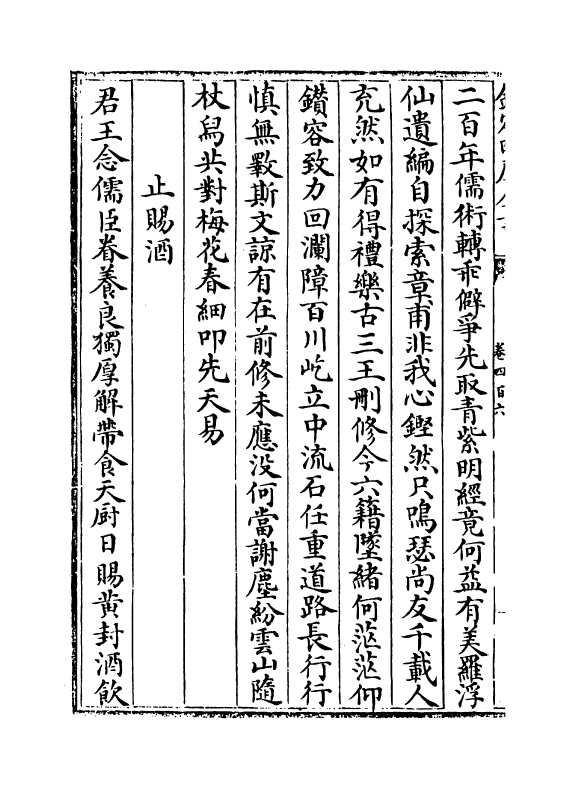 二百年儒術轉乖僻爭先取青紫明經竟何益有美羅浮
仙遺編自探索章甫非我心鏗然只鳴瑟尚友千載人
充然如有得禮樂古三王刪修今六籍墜緒何茫茫仰
鑚容致力回瀾障百川屹立中流石任重道路長行行
慎無斁斯文諒有在前修未應没何當謝塵紛雲山隨
杖舄共對梅花春細叩先天易
止賜酒
君王念儒臣眷養良獨厚解帶食天厨日賜黄封酒飲
卷四百六